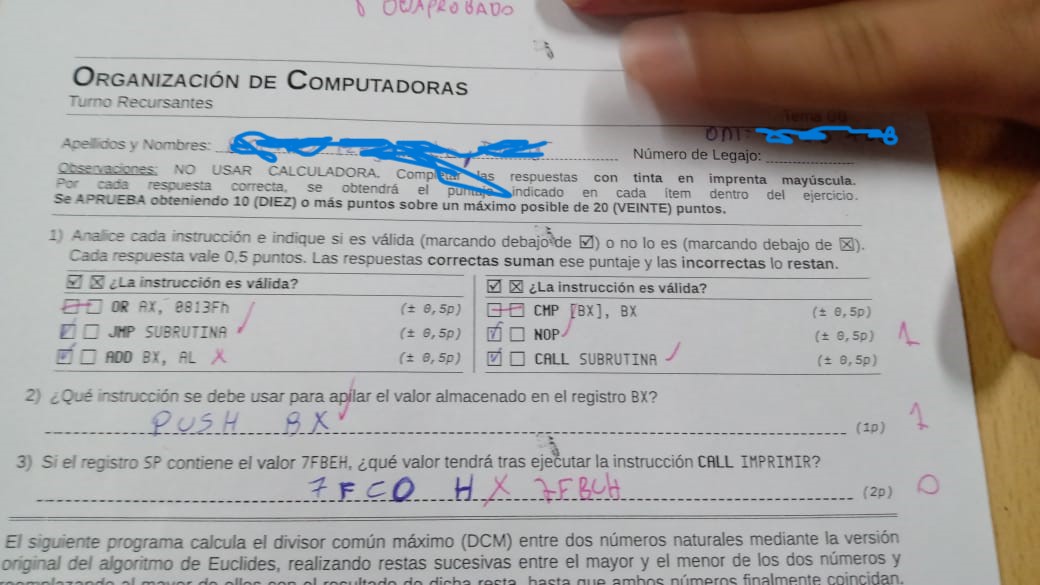 DESAPROBADO
ORGANIZACIÓN DE COMPUTADORAS
Turno Recursantes
Tema 00
DNI:
Apellidos y Nombres:
Número de Legajo:
Observaciones: NO USAR CALCULADORA. Completar las respuestas con tinta en imprenta mayúscula.
Por cada respuesta correcta, se obtendrá el puntaje indicado en cada ítem dentro del ejercicio.
Se APRUEBA obteniendo 10 (DIEZ) o más puntos sobre un máximo posible de 20 (VEINTE) puntos.
1) Analice cada instrucción e indique si es válida (marcando debajo de ☑) o no lo es (marcando debajo de ☒).
Cada respuesta vale 0,5 puntos. Las respuestas correctas suman ese puntaje y las incorrectas lo restan.
☑ ☒ ¿La instrucción es válida?
OR AX, 0813Fh (± 0,5p)
JMP SUBRUTINA (± 0,5p)
ADD BX, AL X (± 0,5p)
☑ ☒ ¿La instrucción es válida?
CMP [BX], BX (± 0,5p)
NOP (± 0,5p) 1
CALL SUBRUTINA (± 0,5p)
2) ¿Qué instrucción se debe usar para apilar el valor almacenado en el registro BX?
PUSH BX (1p) 1
3) Si el registro SP contiene el valor 7FBEH, ¿qué valor tendrá tras ejecutar la instrucción CALL IMPRIMIR?
7FC0 H X 7FBCH (2p) 0
El siguiente programa calcula el divisor común máximo (DCM) entre dos números naturales mediante la versión
original del algoritmo de Euclides, realizando restas sucesivas entre el mayor y el menor de los dos números y
reemplazando al mayor de ellos con el resultado de dicha resta, hasta que ambos números finalmente coincidan.